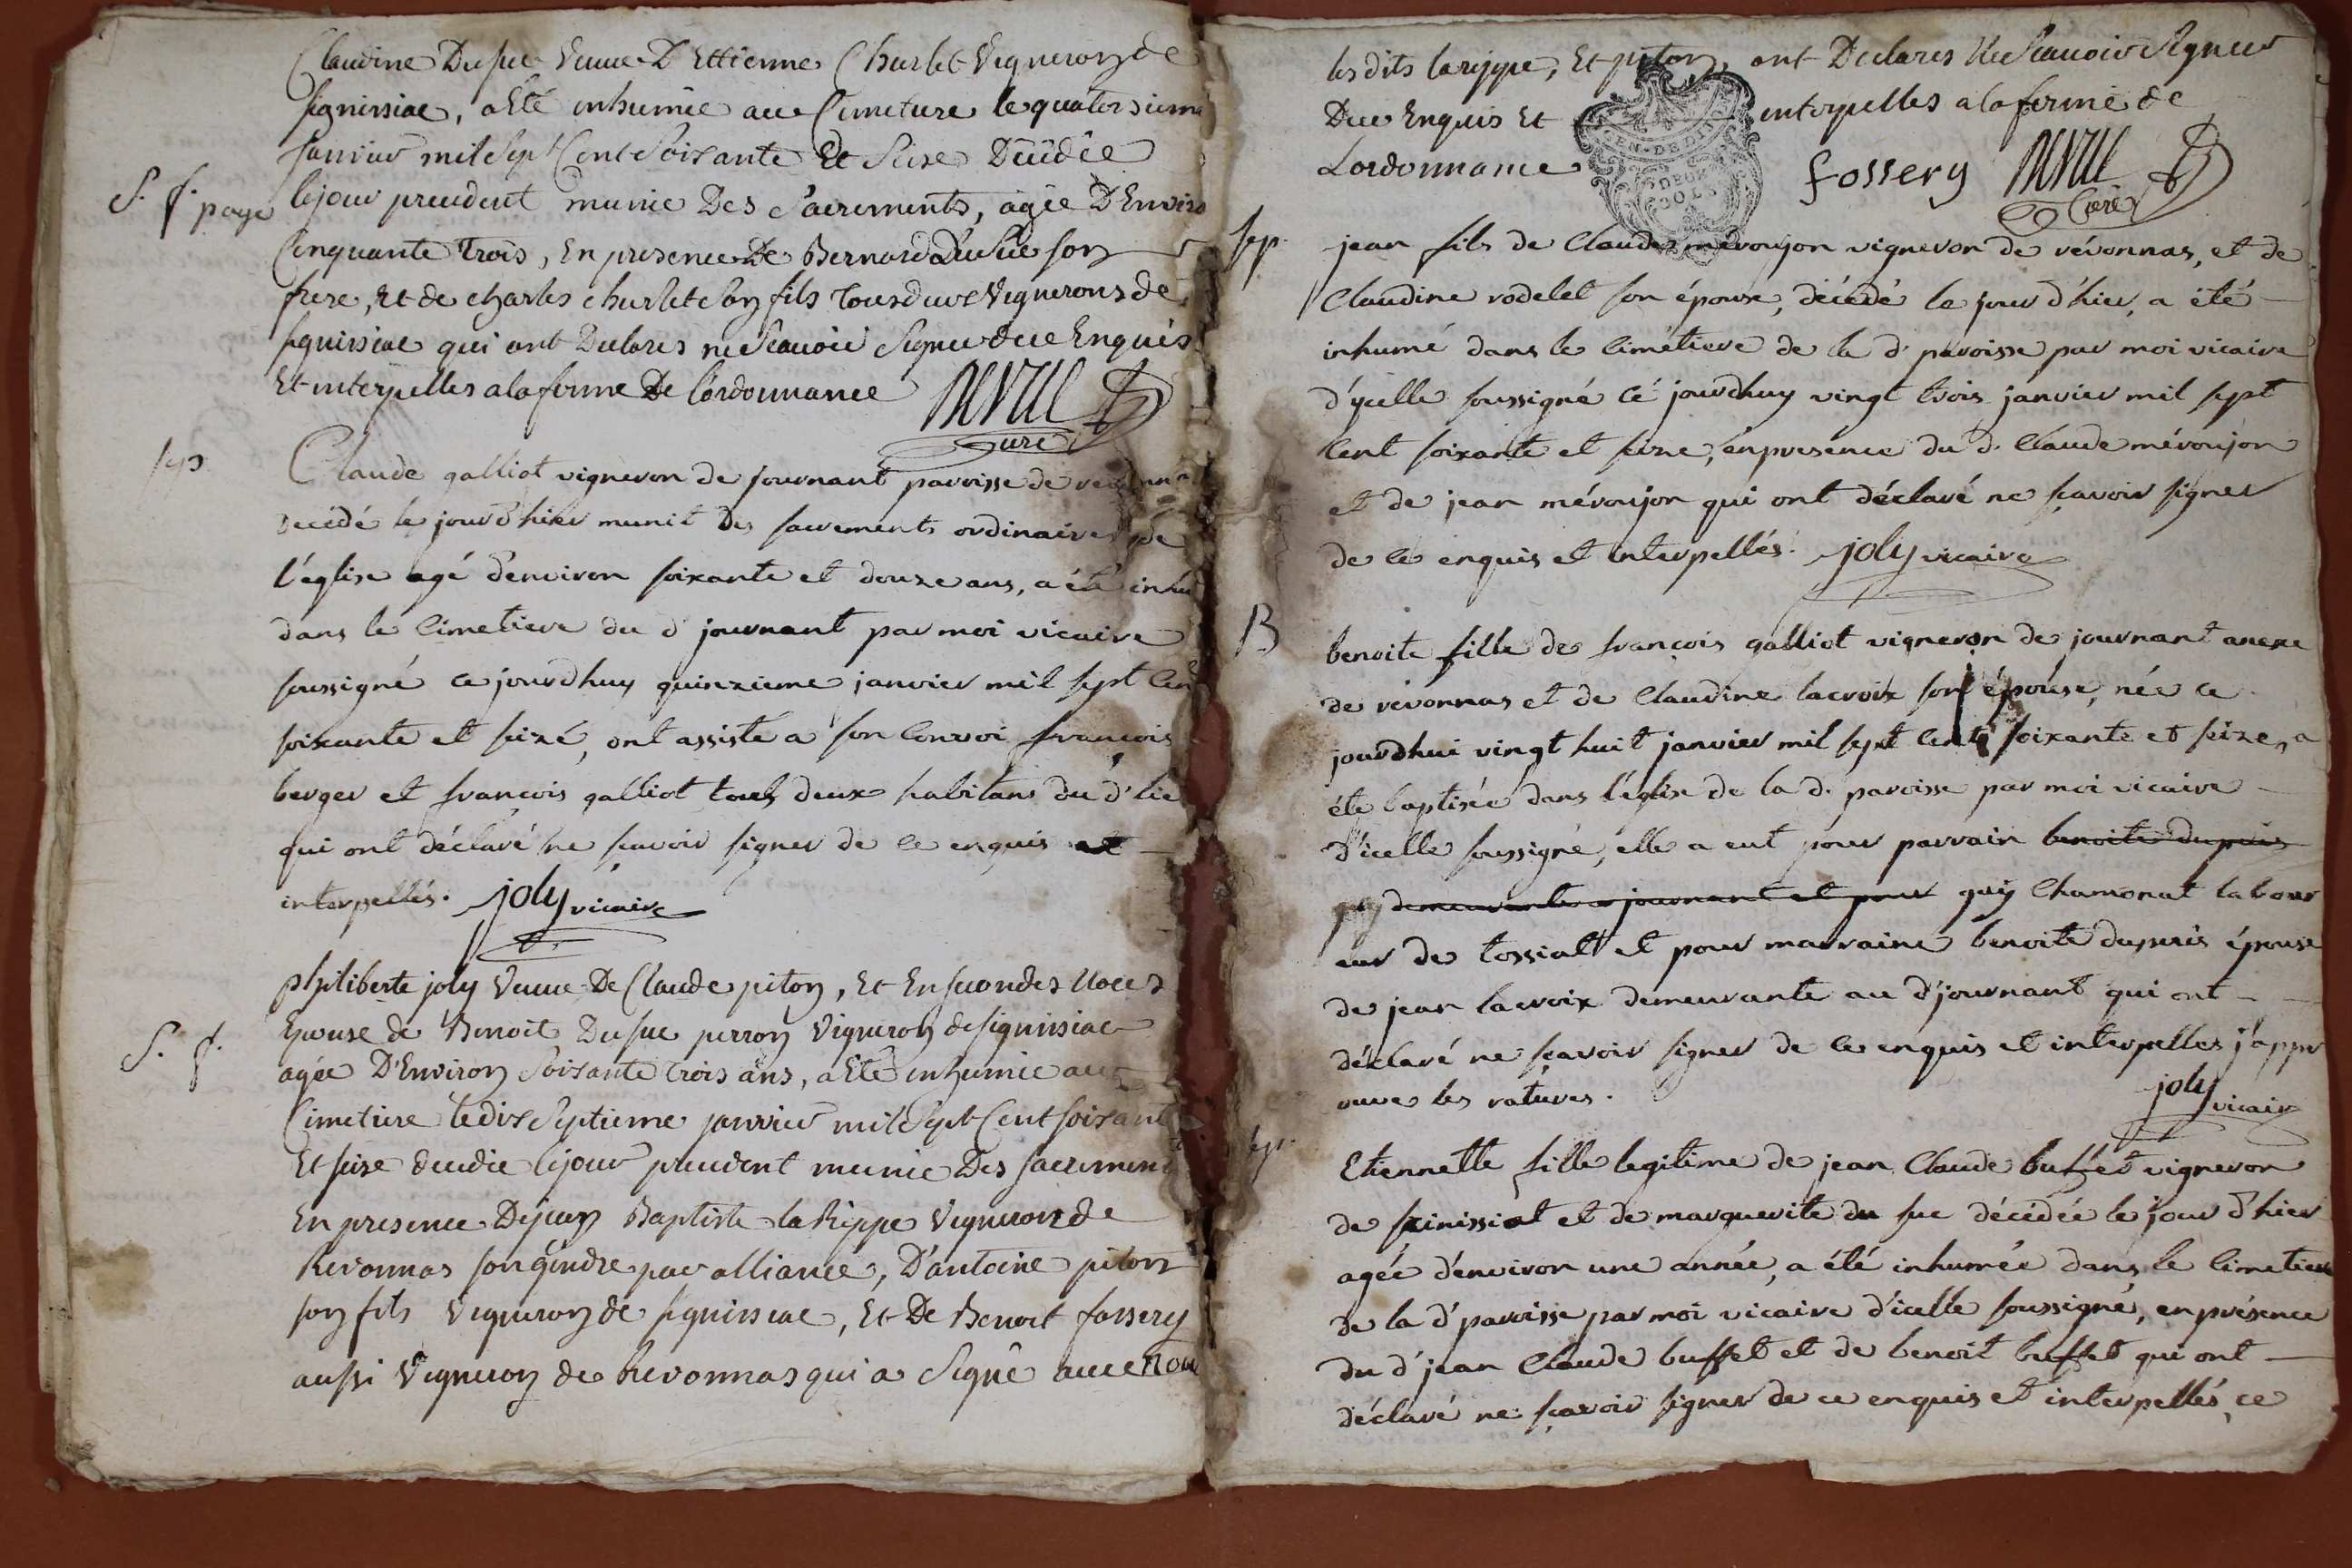 Claudine Dusuc veuve D'Ettienne Charlet Vigneron de
signissiac, a Eté inhumée au Cimetiere le quatorsieme
janvier mil Sept Cent Soisante Et Seise Décédée
S. f. page le jour precedent munie Des Sacrements, agée D'Enviro
Cinquante Trois, En presence De Bernard Dusuc son
frere, Et de charles charlet son fils tous deux Vignerons de
signissiac qui ont Declarés ne Scavoir Signer de ce Enquis
Et interpellés a la forme De l'ordonnance
Curé
sep
Claude galliot vigneron de journant paroisse de revonna
decédé le jour d'hier munit des sacrements ordinaires de
l'église agé d'environ soixante et douze ans, a été inhu
dans le cimetiere du d' journant par moi vicaire
soussigné ce jourdhuy quinzieme janvier mil sept cen
soixante et seize, ont assisté a son convoi françois
berger et françois galliot touts deux habitans du d' lie
qui ont déclaré ne scavoir signer de ce enquis et
interpellés. joly vicaire
philiberte joly Veuve De Claude piton, Et En secondes Noces
S. f. Epouse de Benoit Dusuc perron Vigneron de signissiac
agée D'Environ Soisante trois ans, a Eté inhumée au
Cimetiere le dix Septieme janvier mil Sept Cent soisant
Et seise decedée le jour precedent munie Des sacrement
En presence De jean Baptiste la Rippe Vigneron de
Revonnas son gendre par alliance, D'antoine piton
son fils Vigneron de signissiac, Et De Benoit fossery
aussi Vigneron de Revonnas qui a Signé avec nou
les dits larippe, Et piton, ont Declarés Ne Scavoir Signer
De ce Enquis Et interpellés a la forme de
L'ordonnance fossery
Curé
sep. jean fils de Claude mévoujon vigneron de révonnas, et de
Claudine rodelet son épouse, décédé le jour d'hier, a été
inhumé dans le cimétiere de la d' paroisse par moi vicaire
d'ycelle soussigné cé jourdhuy vingt trois janvier mil sept
cent soixante et seize, en presence du d. Claude mévoujon
et de jean mévoujon qui ont déclaré ne sçavoir signer
de ce enquis et interpellés. joly vicaire
B
benoite fille de françois galliot vigneron de journant anexe
de révonnas et de Claudine lacroix son épouse, née ce
jourdhui vingt huit janvier mil sept cent soixante et seize, a
éte baptisée dans l'église de la d. paroisse par moi vicaire
d'icelle soussigné, elle a eut pour parrain benoite dupuis
demeurante a journant et pour guy Chamonat labour
eur de tossiat et pour marraine benoite dupuis épouse
de jean lacroix demeurante au d' journant qui ont
déclaré ne sçavoir signer de ce enquis et interpelles j'appr
ouve les ratures. joly vicaire
sep. Etiennette fille legitime de jean Claude buffet vigneron
de seinissiat et de marguerite du suc décédée le jour d'hier
agée d'environ une année, a été inhumée dans le cimetiere
de la d' paroisse par moi vicaire d'icelle soussigné, en présence
du d' jean Claude buffet et de benoit buffet qui ont
déclaré ne sçavoir signer de ce enquis et interpellés, ce